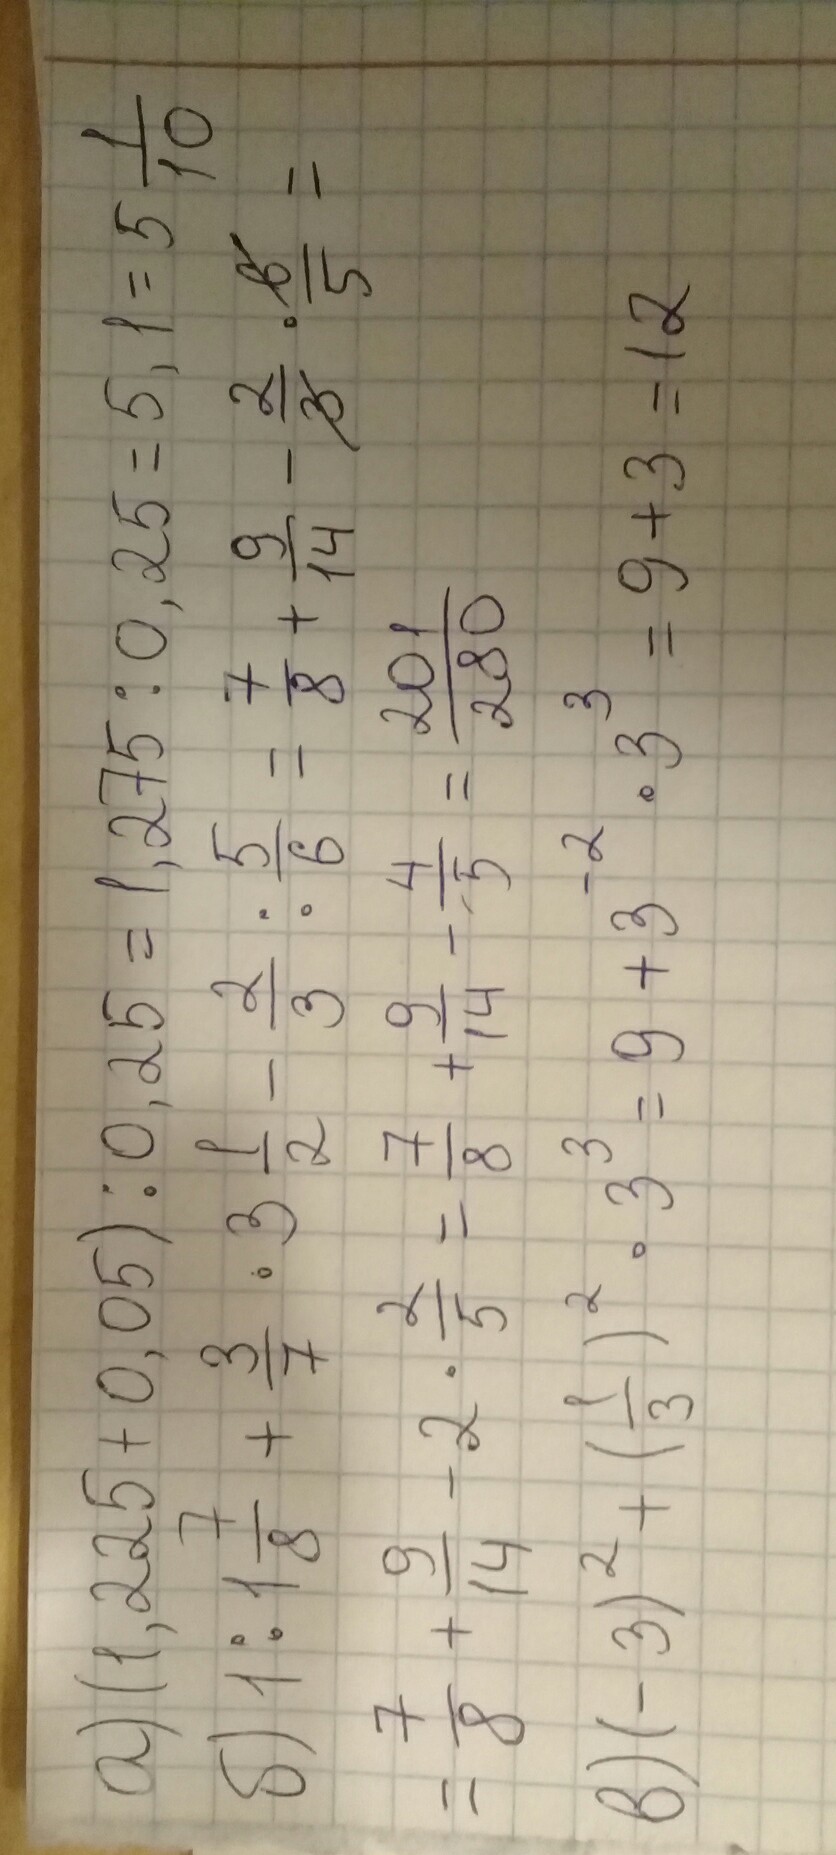 а) (1,225+0,05):0,25=1,275:0,25=5,1=5 1/10
б) 1:1 7/8 + 3/7 · 3 1/2 - 2/3 : 5/6 = 7/8 + 9/14 - 2/3 · 6/5 =
= 7/8 + 9/14 - 2 · 2/5 = 7/8 + 9/14 - 4/5 = 201/280
в) (-3)² + (1/3)² · 3³ = 9 + 3⁻² · 3³ = 9+3=12